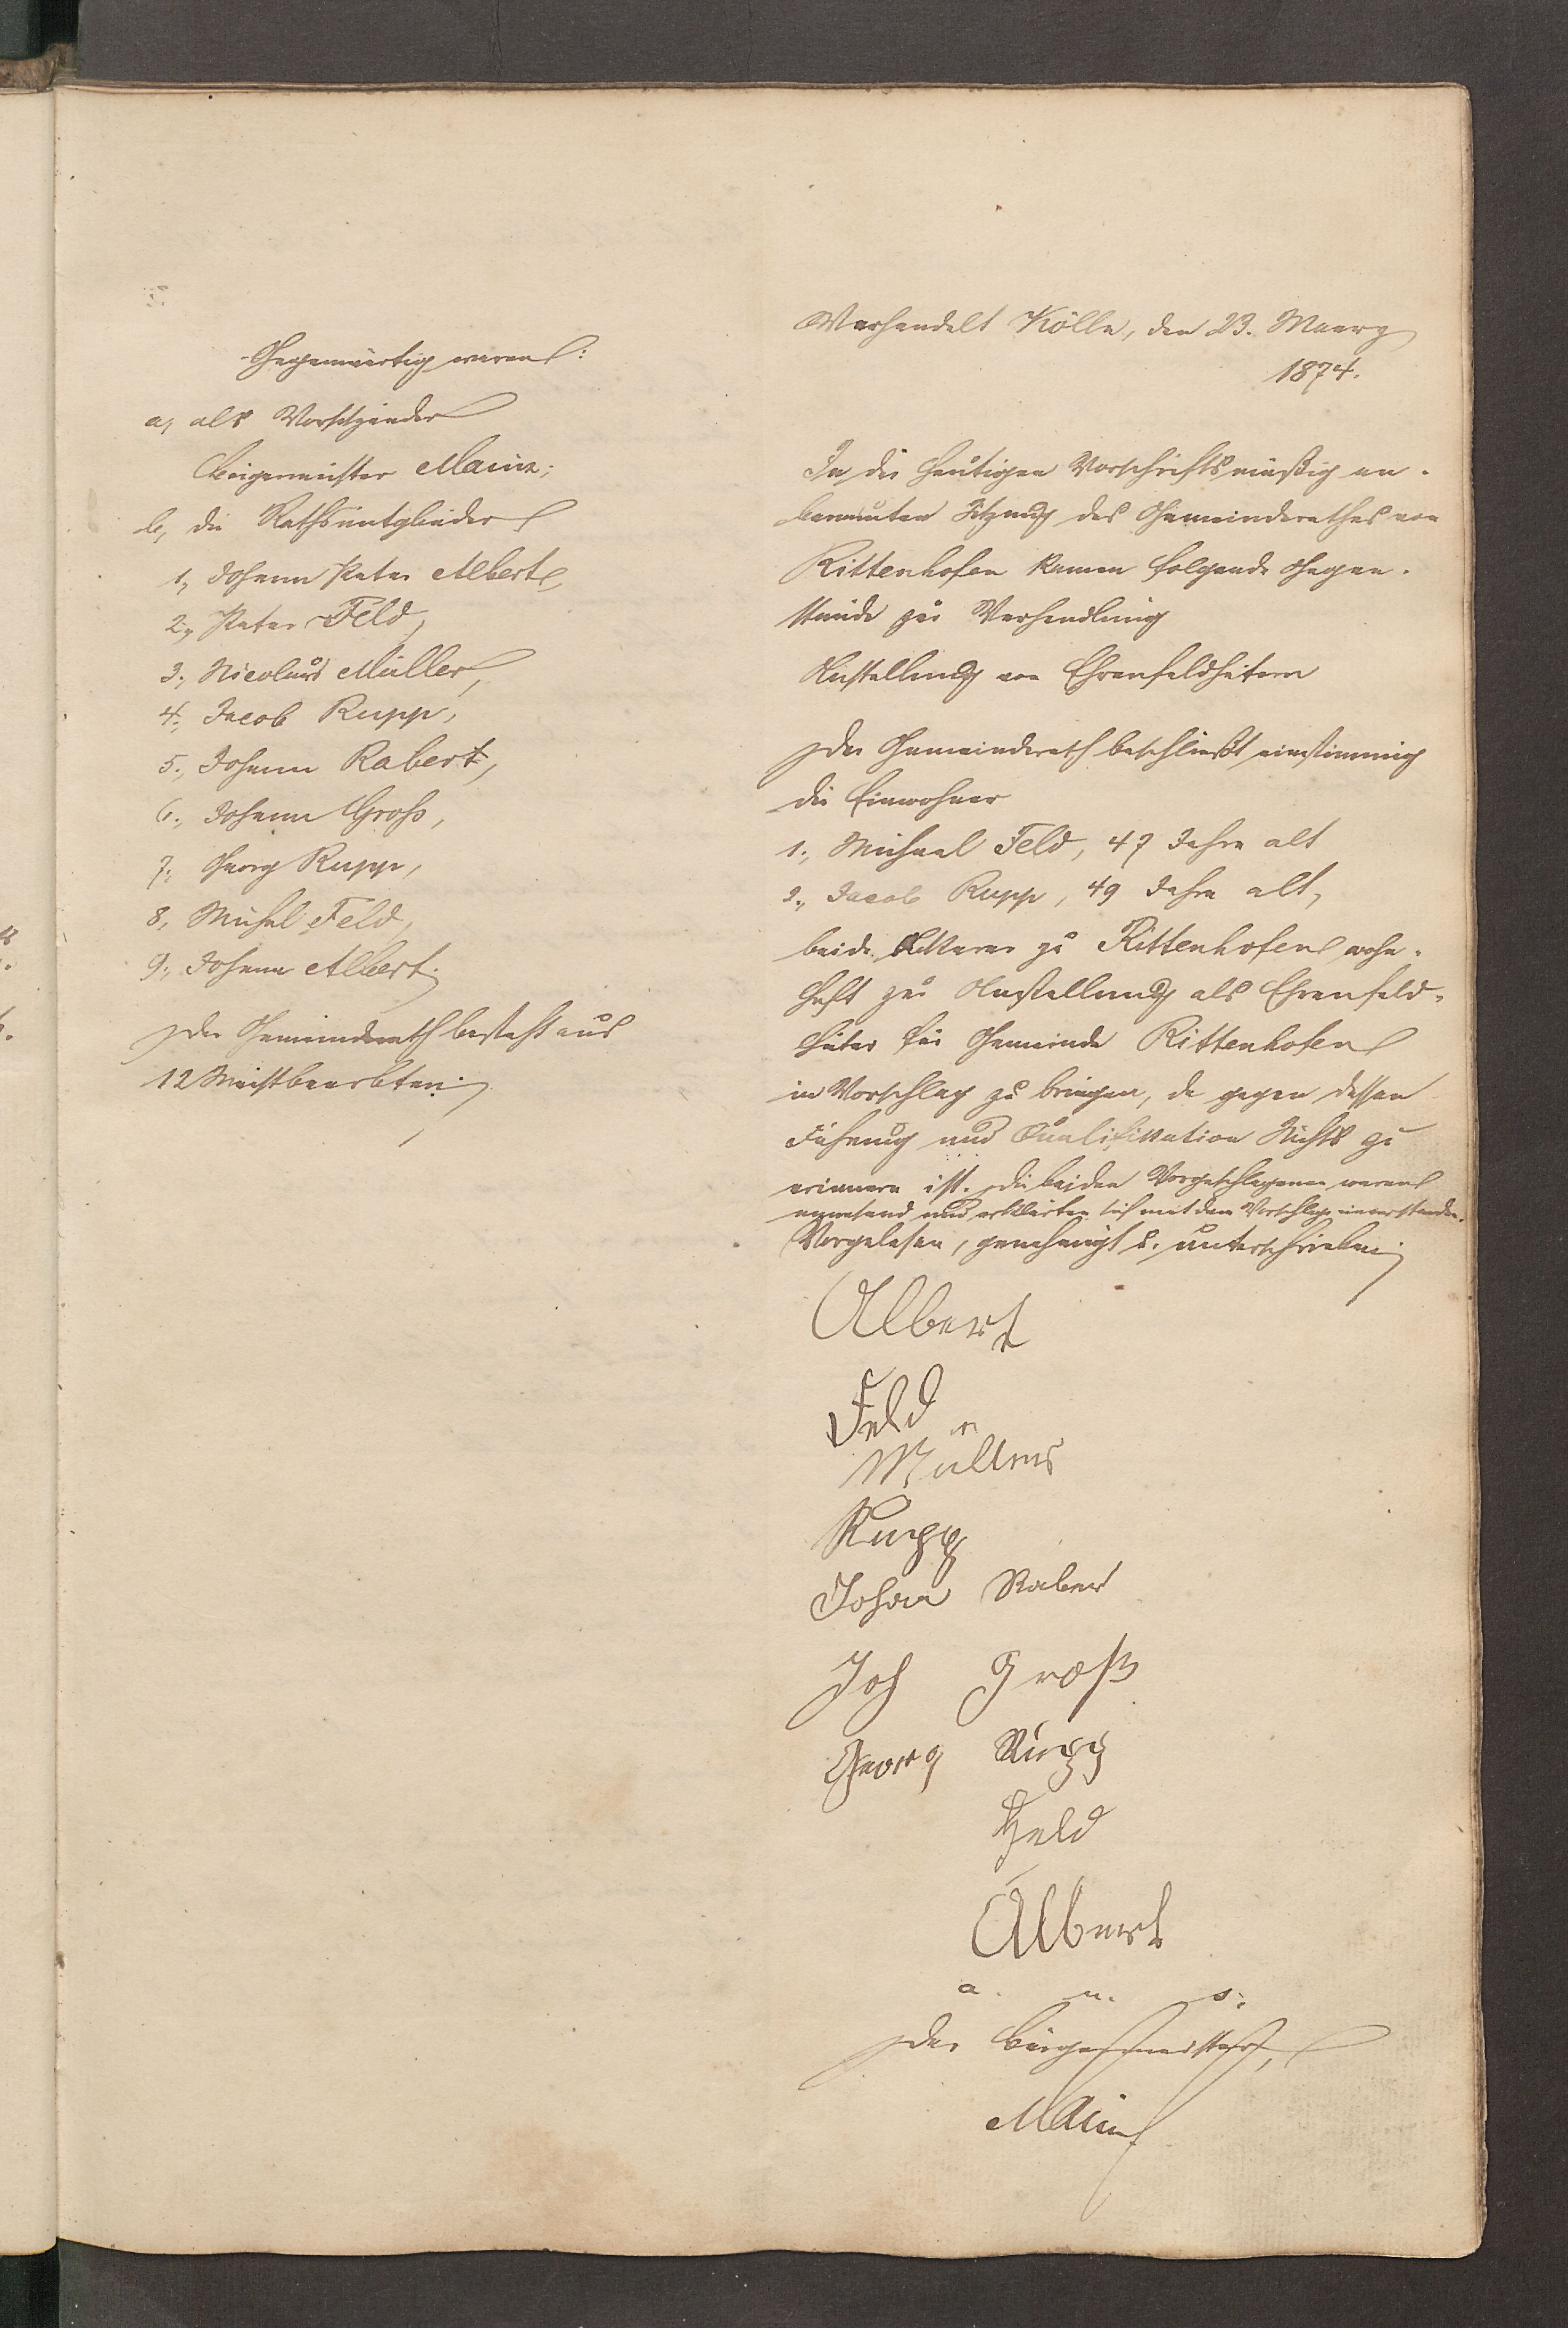 Gegenwärtig waren:
a, als Vorsitzender
Bürgermeister Mainz;
b, die Rathsmitglieder
1, Johann Peter Albert,
2, Peter Feld,
3, Nicolaus Müller,
4, Jacob Rupp,
5, Johann Rabert,
6, Johann Groß,
7, Georg Rupp,
8, Michel Feld,
9, Johann Albert.
Der Gemeinderath besteht aus
12 Meistbeerbten.
Verhandelt Kölln, den 23. Maerz
1874.
In der heutigen Vorschriftsmäßig an-
beraumten Sitzung des Gemeinderathes von
Rittenhofen kamen folgende Gegen-
stände zur Verhandlung
Anstellung von Ehrenfeldhütern
Der Gemeinderath beschließt einstimmig
die Einwohner
1, Michael Feld, 47 Jahre alt
2, Jacob Rupp, 49 Jahre alt,
beide Ackerer zu Rittenhofen wohn-
haft zur Anstellung als Ehrenfeld-
hüter für Gemeinde Rittenhofen
in Vorschlag zu bringen, da gegen dessen
Führung und Qualifikation Nichts zu
erinnern ist. Die beiden Vorgeschlagenen waren
anwesend und erklärten sich mit dem Vorschlage einverstanden.
Vorgelesen, genehmigt u. unterschrieben
Albert
Feld
Müller
Rupp
Johan Raber
Joh Groß
Georg Rupp
Feld
Albert
a. u. s.
Der Bürgermeister,
Mainz